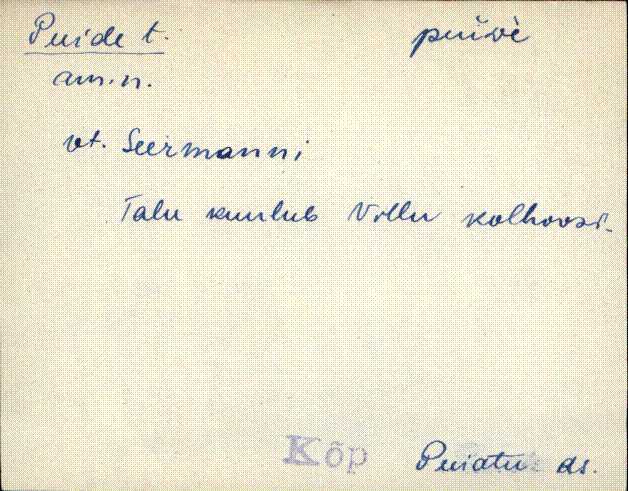 Puide t. puivè
am. n.
vt. Seermanni
Talu kuulub Villu kolhoosi.
Kõp Puiatu ds.